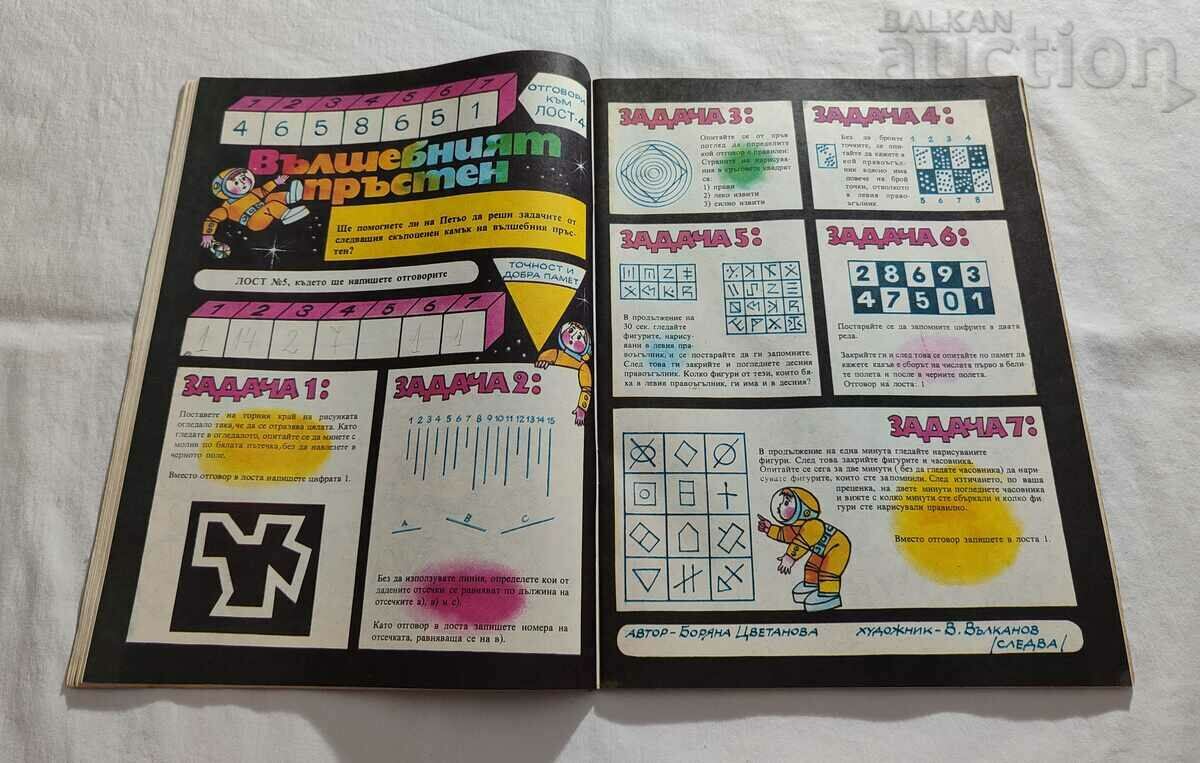 BALKAN
auction
1 2 3 4 5 6 7
4 6 5 8 6 5 1
ОТГОВОРИ
КЪМ
ЛОСТ-4
Вълшебният
пръстен
Ще помогнете ли на Петьо да реши задачите от
следващия скъпоценен камък на вълшебния пръс-
тен?
ЛОСТ №5, където ще напишете отговорите
ТОЧНОСТ И
ДОБРА ПАМЕТ
1 2 3 4 5 6 7
ЗАДАЧА 1:
Поставете на горния край на рисунката
огледало така, че да се отразява цялата. Като
гледате в огледалото, опитайте се да минете с
молив по бялата пътечка, без да навлезете в
черното поле.
Вместо отговор в лоста напишете цифрата 1.
ЗАДАЧА 2:
1 2 3 4 5 6 7 8 9 10 11 12 13 14 15
A B C
Без да използувате линия, определете кои от
дадените отсечки се равняват по дължина на
отсечките а), в) и с).
Като отговор в лоста запишете номера на
отсечката, равняваща се на в).
ЗАДАЧА 3:
Опитайте се от пръв
поглед да определите
кой отговор е правилен:
Страните на нарисува-
ния в кръговете квадрат
са:
1) прави
2) леко извити
3) силно извити
ЗАДАЧА 4:
Без да броите
точките, се опи-
тайте да кажете в
кой правоъгъл-
ник вдясно има
повече на брой
точки, отколкото
в левия право-
ъгълник.
1 2 3 4
5 6 7 8
ЗАДАЧА 5:
В продължение на
30 сек. гледайте
фигурите, нарису-
вани в левия пра-
воъгълник, и се постарайте да ги запомните.
След това ги закрийте и погледнете десния
правоъгълник. Колко фигури от тези, които бя-
ха в левия правоъгълник, ги има и в десния?
ЗАДАЧА 6:
2 8 6 9 3
4 7 5 0 1
Постарайте се да запомните цифрите в двата
реда.
Закрийте ги и след това се опитайте по памет да
кажете какъв е сборът на числата първо в бели-
те полета и после в черните полета.
Отговор на лоста: 1
ЗАДАЧА 7:
В продължение на една минута гледайте нарисуваните
фигури. След това закрийте фигурите и часовника.
Опитайте се сега за две минути (без да гледате часовника) да нари-
сувате фигурите, които сте запомнили. След изтичането, по ваша
преценка, на двете минути погледнете часовника
и вижте с колко минути сте сбъркали и колко фи-
гури сте нарисували правилно.
Вместо отговор запишете в лоста 1.
АВТОР - БОРЯНА ЦВЕТАНОВА
ХУДОЖНИК - В. ВЪЛКАНОВ
/СЛЕДВА/